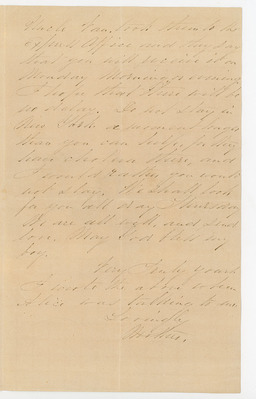 Uncle Van took them to the
Express Office and they say
that you will receive it on
Monday morning or evening
I hope that there will be
no delay. Do not stay in
New York a moment longer
than you can help, for they
have cholera there, and
I would rather you would
not stay. We shall look
for you all day Thursday
We are all well, and send
love. May God bless my
boy.
Very truly yours
I wrote the above when
was talking to me.
Lovingly
Mother.